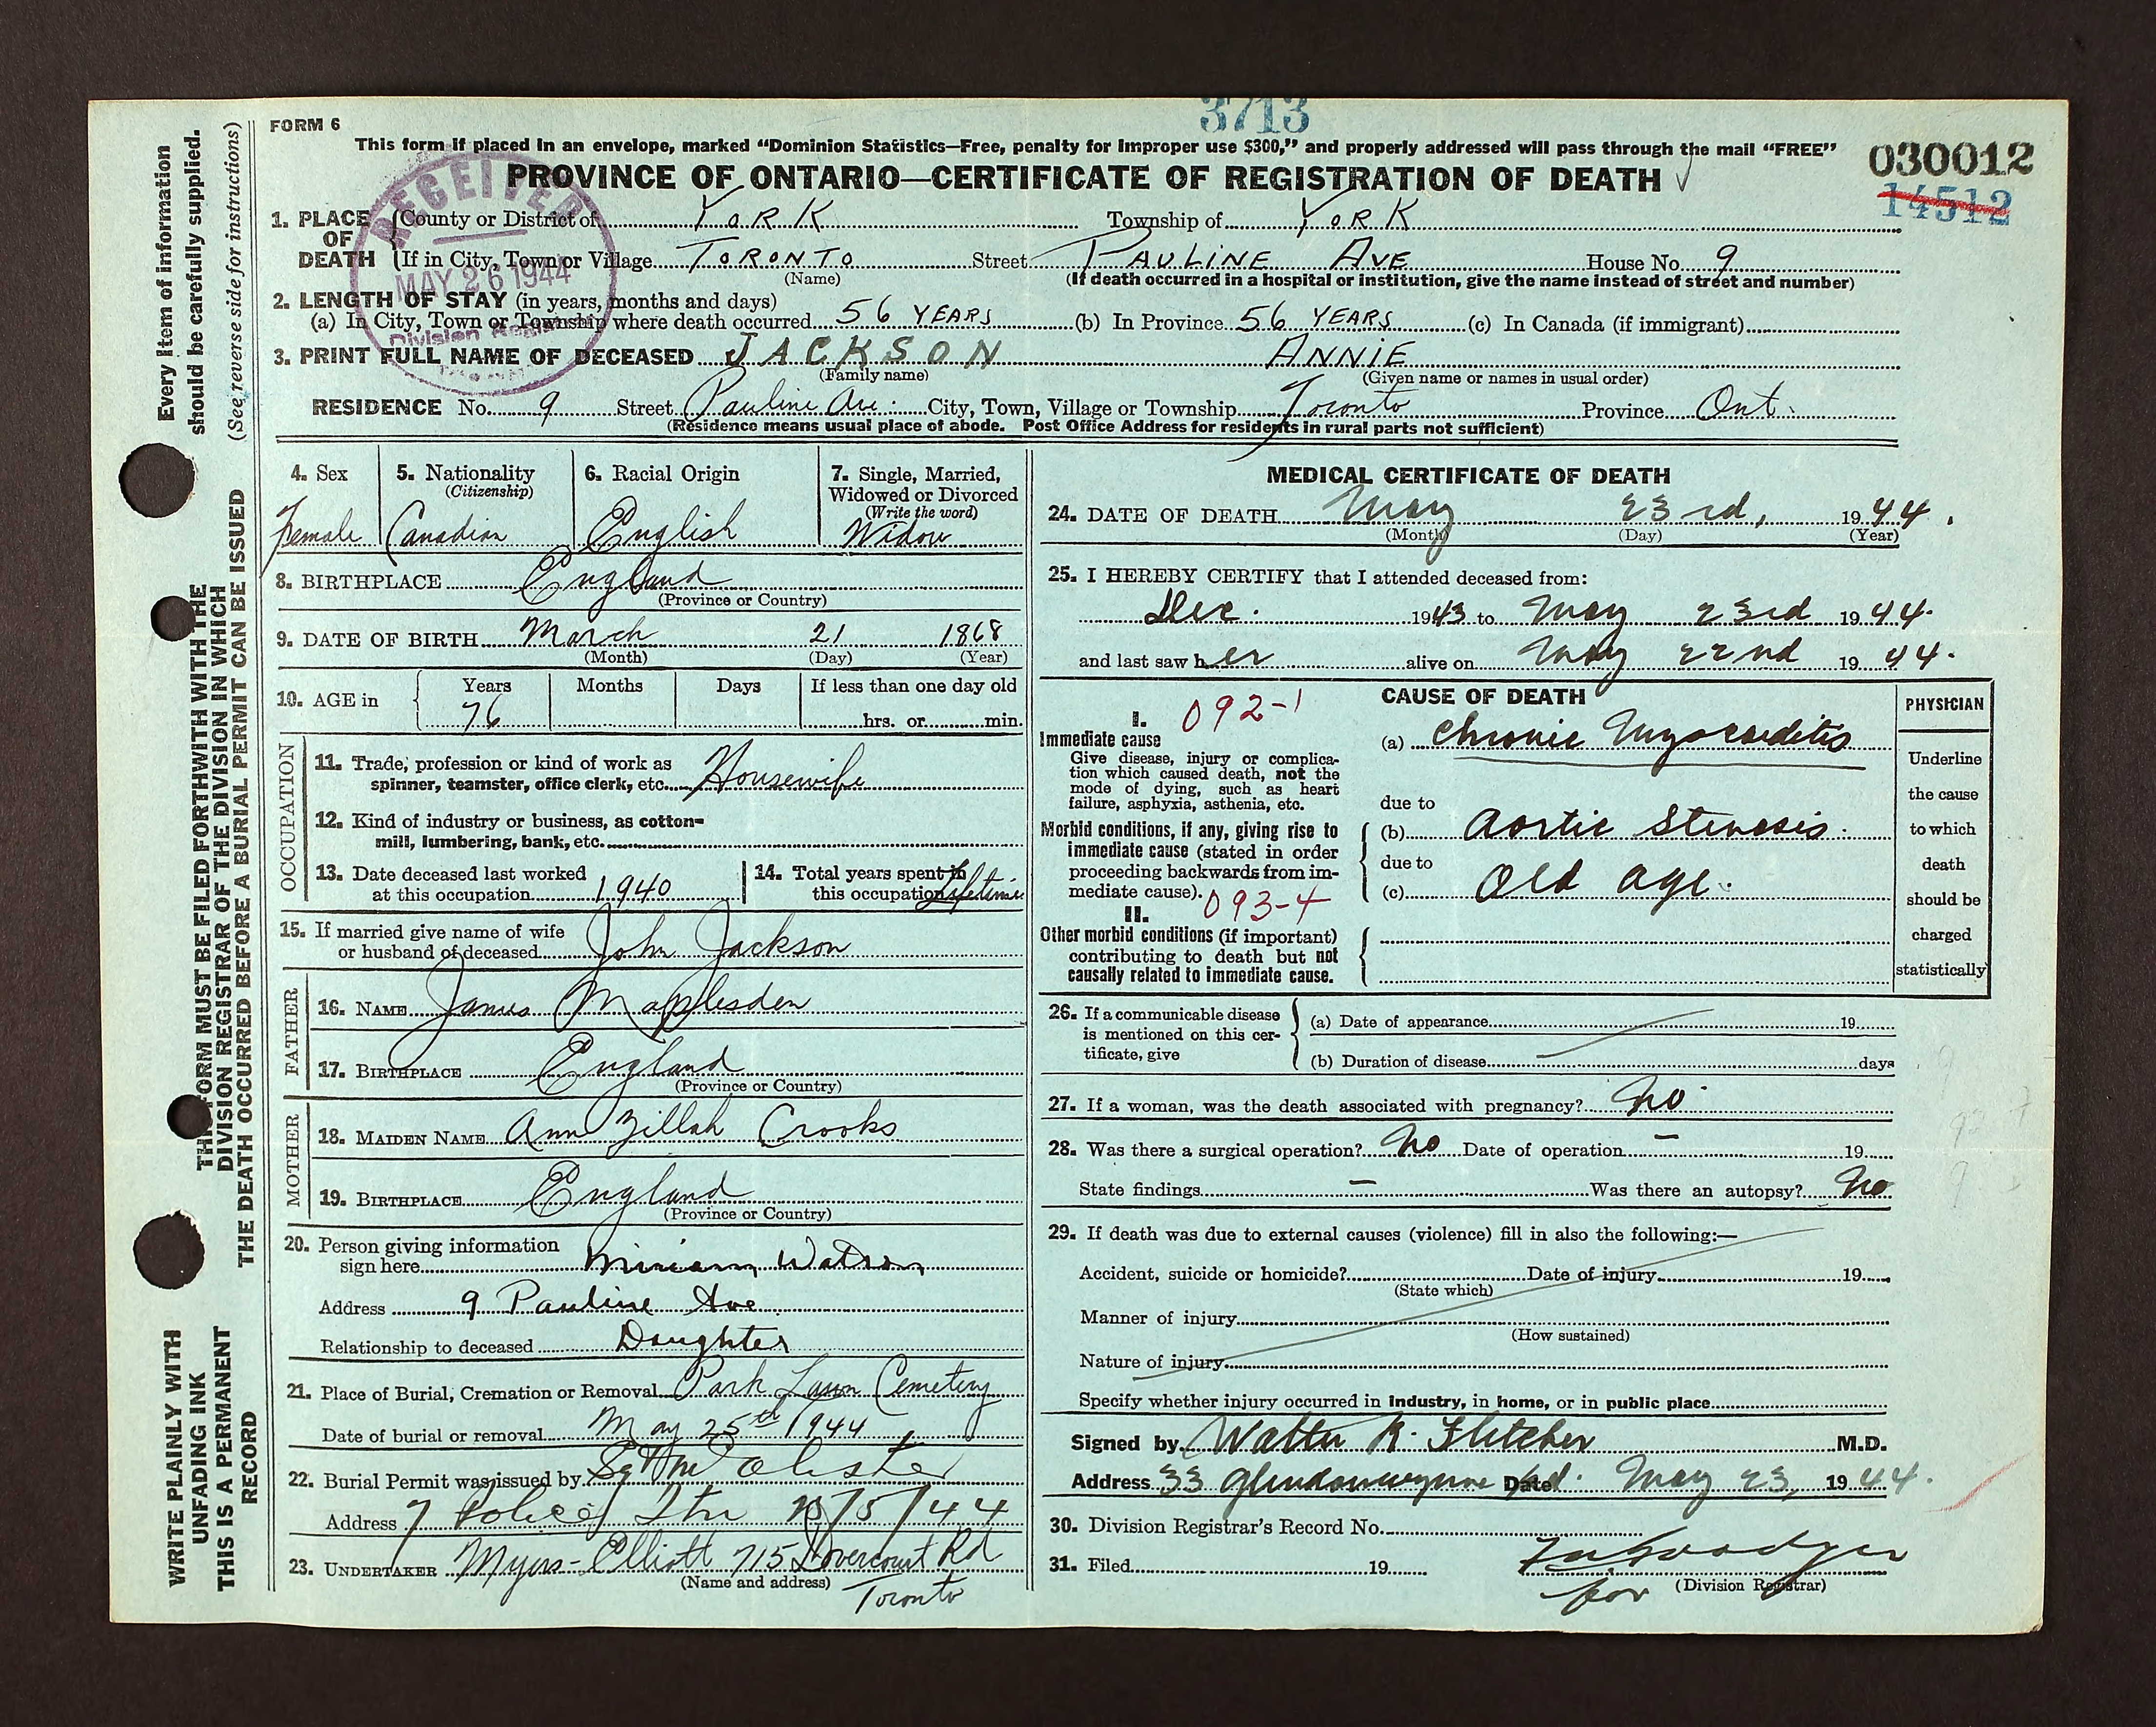 3713
FORM 6
This form if placed in an envelope, marked "Dominion Statistics—Free, penalty for improper use $300," and properly addressed will pass through the mail "FREE"
030012
14512
PROVINCE OF ONTARIO—CERTIFICATE OF REGISTRATION OF DEATH
RECEIVED
MAY 26 1944
Division
1. PLACE OF DEATH
County or District of YORK Township of YORK
If in City, Town or Village TORONTO Street PAULINE AVE House No. 9
(Name) (If death occurred in a hospital or institution, give the name instead of street and number)
2. LENGTH OF STAY (in years, months and days)
(a) In City, Town or Township where death occurred 56 YEARS (b) In Province 56 YEARS (c) In Canada (if immigrant)
3. PRINT FULL NAME OF DECEASED JACKSON ANNIE
(Family name) (Given name or names in usual order)
RESIDENCE No. 9 Street Pauline Ave City, Town, Village or Township Toronto Province Ont.
(Residence means usual place of abode. Post Office Address for residents in rural parts not sufficient)
4. Sex 5. Nationality (Citizenship) 6. Racial Origin 7. Single, Married, Widowed or Divorced (Write the word)
Female Canadian English Widow
8. BIRTHPLACE England
(Province or Country)
9. DATE OF BIRTH March 21 1868
(Month) (Day) (Year)
10. AGE in Years Months Days If less than one day old
76 hrs. or min.
OCCUPATION
11. Trade, profession or kind of work as
spinner, teamster, office clerk, etc. Housewife
12. Kind of industry or business, as cotton-
mill, lumbering, bank, etc.
13. Date deceased last worked
at this occupation 1940
14. Total years spent in
this occupation Lifetime
15. If married give name of wife
or husband of deceased John Jackson
FATHER
16. NAME James Maplesden
17. BIRTHPLACE England
(Province or Country)
MOTHER
18. MAIDEN NAME Ann Zillah Crooks
19. BIRTHPLACE England
(Province or Country)
20. Person giving information
sign here Miriam Watson
Address 9 Pauline Ave
Relationship to deceased Daughter
21. Place of Burial, Cremation or Removal Park Lawn Cemetery
Date of burial or removal May 25th 1944
22. Burial Permit was issued by Sgt
Address 7 Police Stn /5/44
23. UNDERTAKER Myers-Elliott 715 Dovercourt Rd
(Name and address) Toronto
MEDICAL CERTIFICATE OF DEATH
24. DATE OF DEATH May 23rd, 1944.
(Month) (Day) (Year)
25. I HEREBY CERTIFY that I attended deceased from:
Dec. 1943 to May 23rd 1944.
and last saw her alive on May 22nd 1944.
CAUSE OF DEATH
PHYSICIAN
Underline
the cause
to which
death
should be
charged
statistically
I. 092-1
Immediate cause
Give disease, injury or complica-
tion which caused death, not the
mode of dying, such as heart
failure, asphyxia, asthenia, etc.
(a) Chronic Myocarditis
due to
Morbid conditions, if any, giving rise to
immediate cause (stated in order
proceeding backwards from im-
mediate cause). 093-4
(b) Aortic Stenosis.
due to
(c) Old age.
II.
Other morbid conditions (if important)
contributing to death but not
causally related to immediate cause.
26. If a communicable disease
is mentioned on this cer-
tificate, give
(a) Date of appearance 19
(b) Duration of disease days
27. If a woman, was the death associated with pregnancy? No
28. Was there a surgical operation? No Date of operation – 19
State findings – Was there an autopsy? No
29. If death was due to external causes (violence) fill in also the following:—
Accident, suicide or homicide? Date of injury 19
(State which)
Manner of injury
(How sustained)
Nature of injury
Specify whether injury occurred in industry, in home, or in public place
Signed by Walter K. Fletcher M.D.
Address 33 Glendonwynne Rd. Dated May 23, 1944.
30. Division Registrar's Record No.
31. Filed 19
for (Division Registrar)
Every item of information
should be carefully supplied.
(See reverse side for instructions)
THIS FORM MUST BE FILED FORTHWITH WITH THE
DIVISION REGISTRAR OF THE DIVISION IN WHICH
THE DEATH OCCURRED BEFORE A BURIAL PERMIT CAN BE ISSUED
WRITE PLAINLY WITH
UNFADING INK
THIS IS A PERMANENT
RECORD